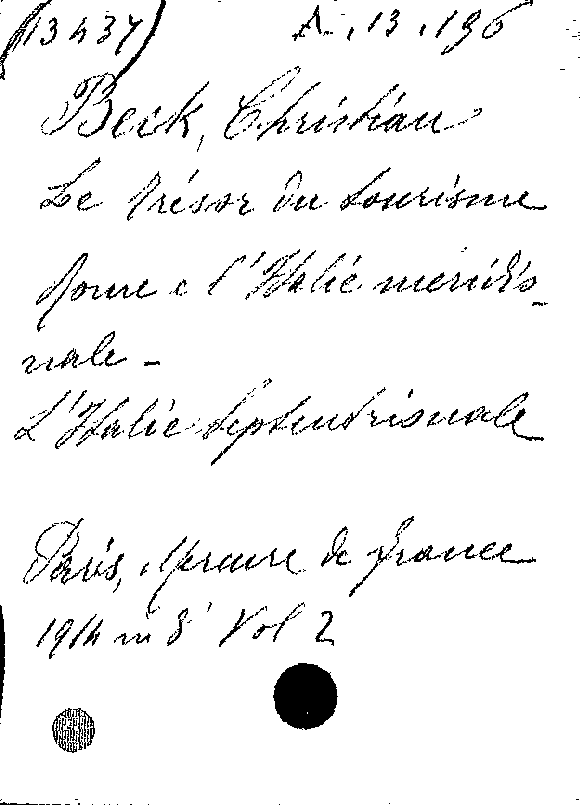 (13437) A. 13. 196
Beck, Christian
Le trésor du tourisme
Rome e l'Italie meridio-
nale -
L'Italie Septentrionale
Paris, Mercure de France
1914 in 8° Vol 2